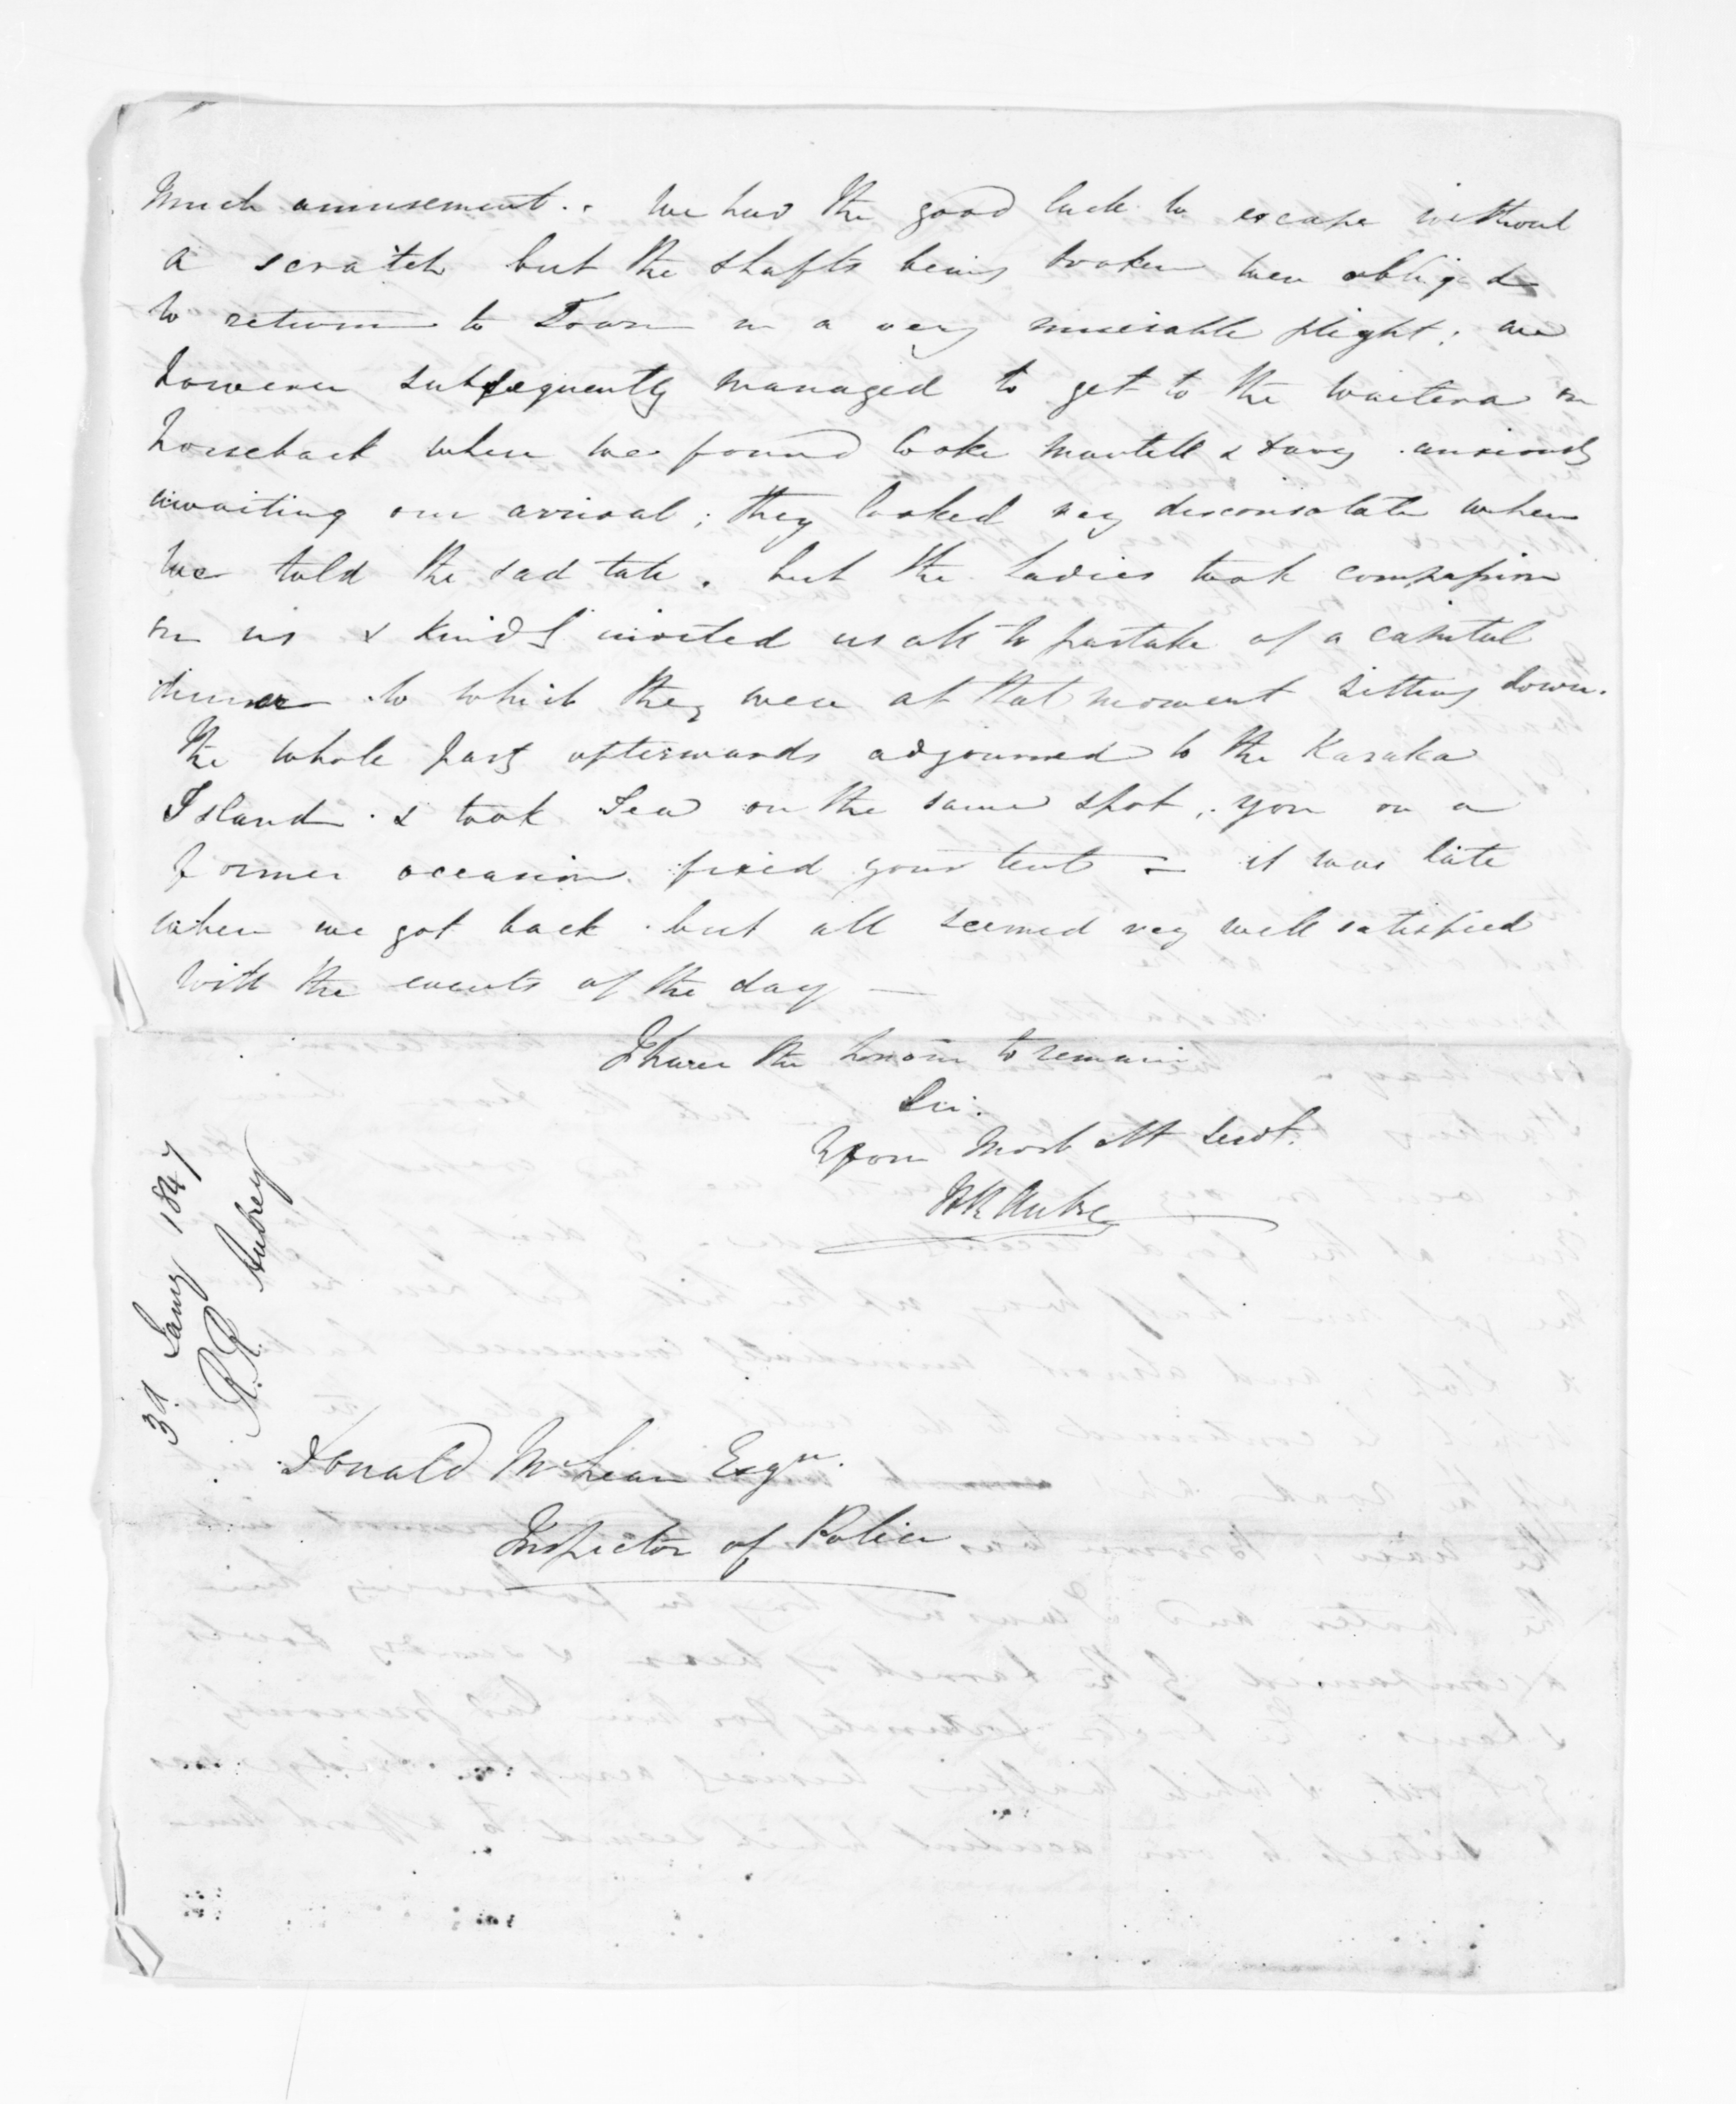 Much amusement. We had the good luck to escape without
a scratch but the shafts being broken were obliged
to return to Town in a very miserable plight; we
however subsequently managed to get to the Waitera on
horseback where we found Cooke Mantell & Davy anxiously
awaiting our arrival; they looked very disconsolate when
we told the sad tale. but the Ladies took compassion
on us & kindly invited us all to partake of a capital
dinner to which they were at that moment sitting down.
The whole party afterwards adjourned to the Karaka
Island & took Tea on the same spot, you on a
former occasion fixed your tent - it was late
when we got back but all seemed very well satisfied
with the events of the day —
I have the honor to remain
Sir.
Your Most Obt Servt.
R R Aubrey
3d. Jany 1847
R. R. Aubrey
Donald McLean Esqre.
Inspector of Police